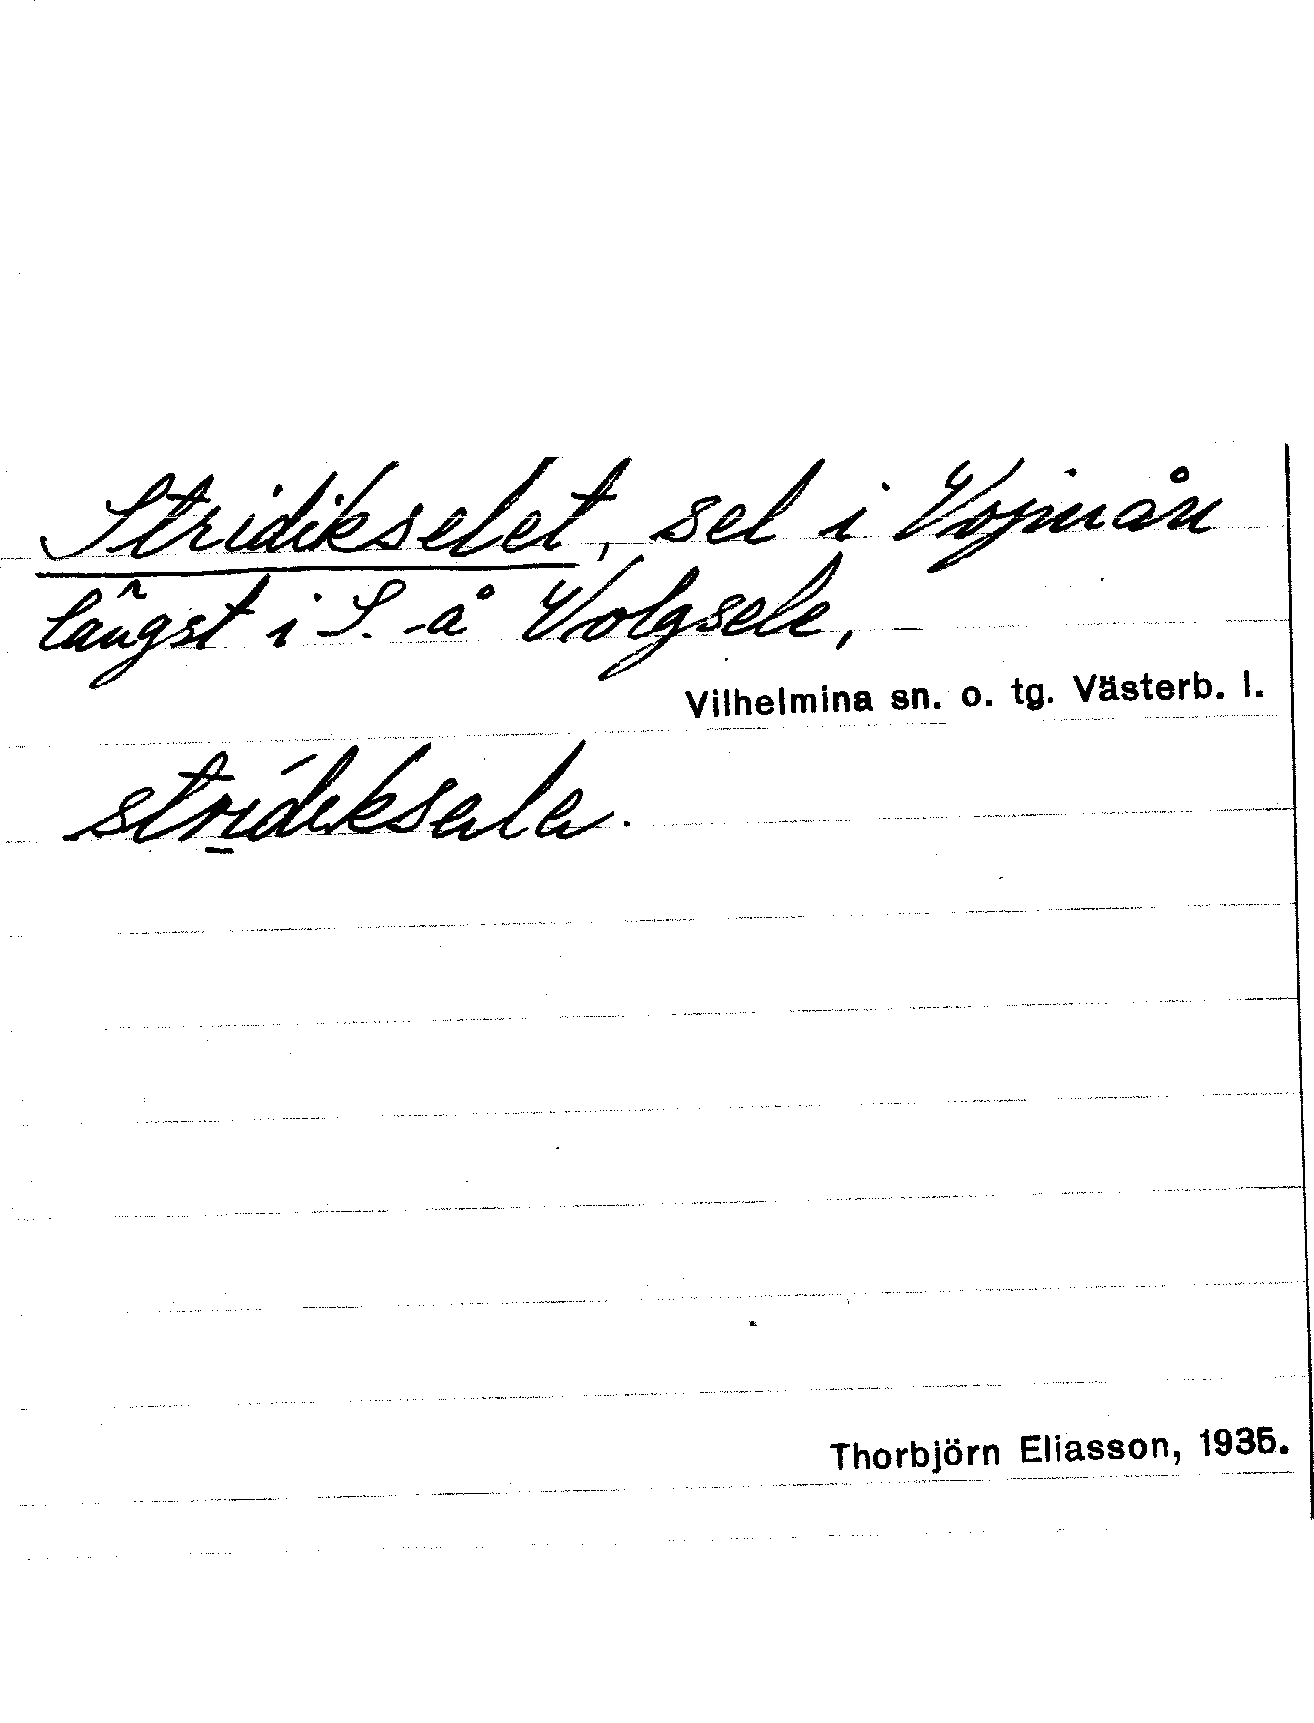 Stridikselet, sel i Vojmån
längst i S. å Volgsele,
Vilhelmina sn. o. tg. Västerb. l.
strídiksele.
Thorbjörn Eliasson, 1935.